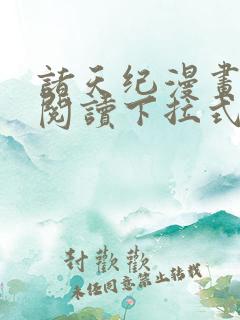 諸天纪漫畫
閱讀下拉式
封歡歡
未经同意禁止转载